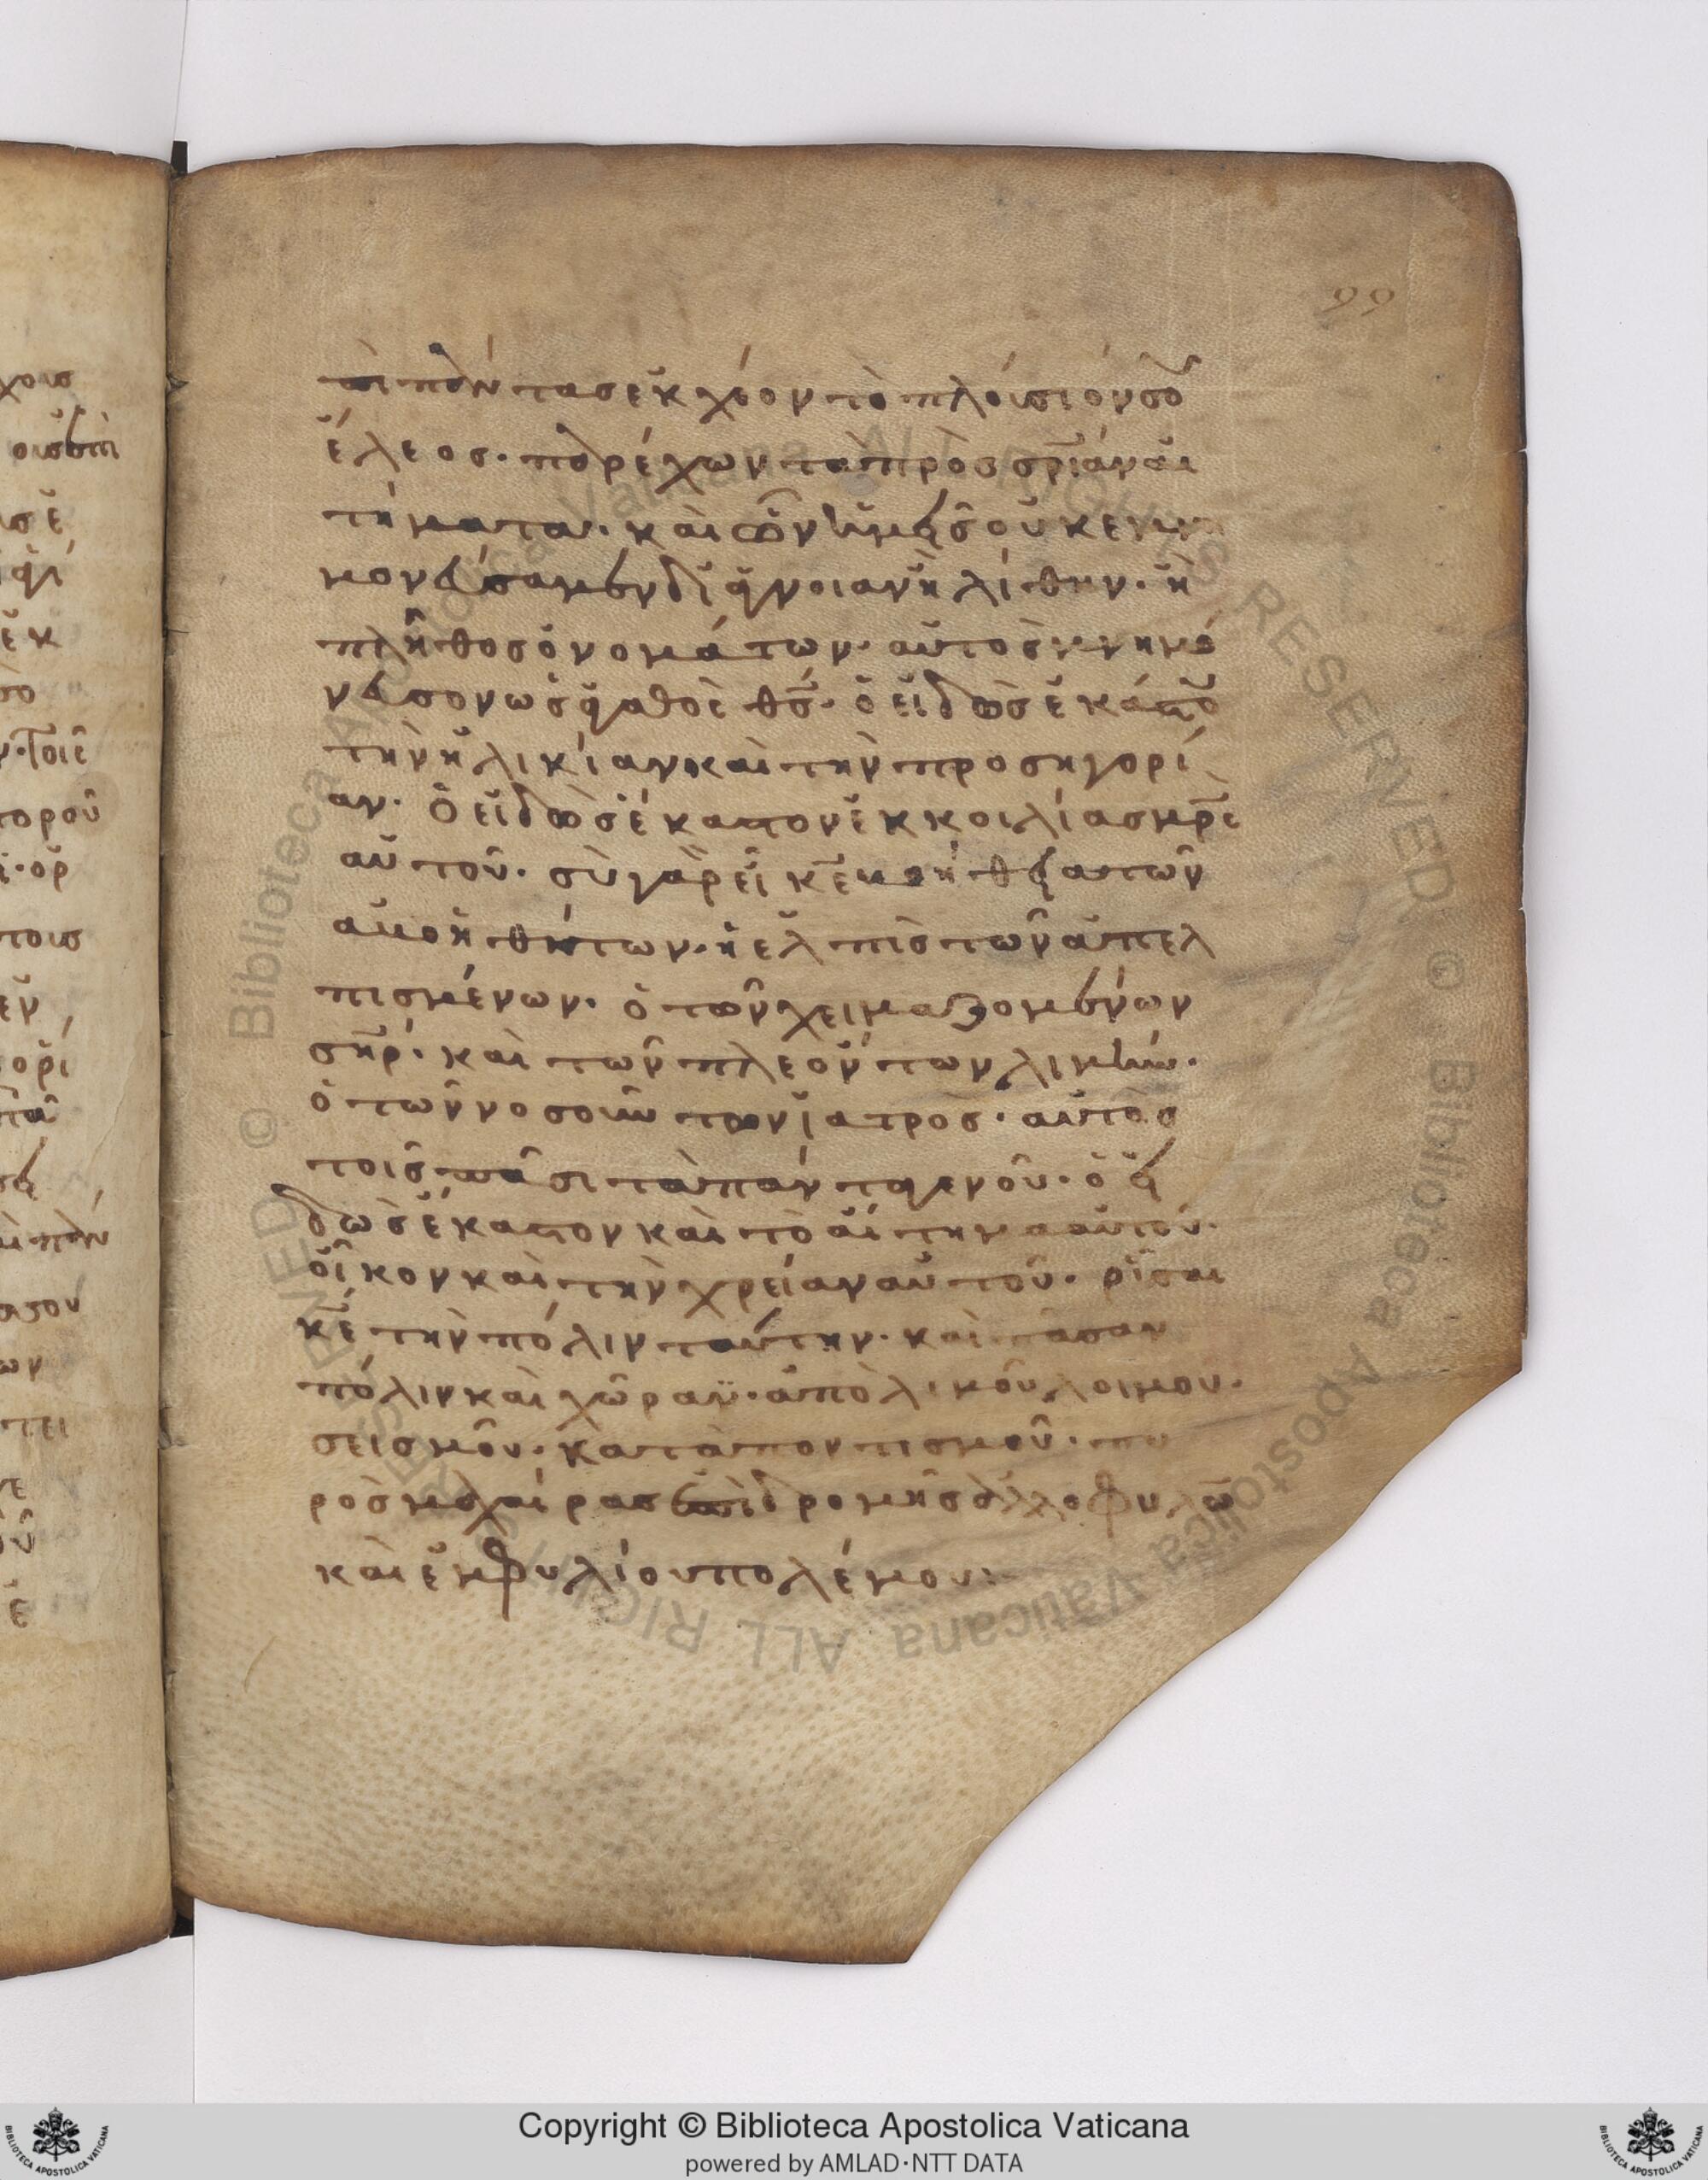 99
αι πάντας ἔκχεον τὸ πλούσιόν σου
ἔλεος· παρέχων τὰ πρὸς σρίαν αἰ
τήματα· καὶ ὧν ἡμεῖς οὐκ ἐμνη
μονεύσαμεν δι' ἄγνοιαν ἢ λήθην· ἢ
πλῆθος ὀνομάτων· αὐτὸς μνημό
νευσον ὡς ἀγαθὸς θς· ὁ εἰδὼς ἑκάστου
τὴν ἡλικίαν καὶ τὴν προσηγορί
αν· ὁ εἰδὼς ἕκαστον ἐκ κοιλίας μρς
αὐτοῦ· σὺ γὰρ εἶ κε ἡ βοήθεια τῶν
ἀβοηθήτων· ἡ ἐλπὶς τῶν ἀπελ
πισμένων· ὁ τῶν χειμαζομένων
σηρ· καὶ τῶν πλεόντων λιμήν·
ὁ τῶν νοσούντων ἰατρός· αὐτὸς
τοῖς πᾶσι τὰ πάντα γενοῦ· ὁ εἰ
δὼς ἕκαστον καὶ τὸ αἴτημα αὐτοῦ·
οἶκον καὶ τὴν χρείαν αὐτοῦ· ρῦσαι
κε τὴν πόλιν ταύτην· καὶ πᾶσαν
πόλιν καὶ χώραν· ἀπὸ λιμοῦ λοιμοῦ·
σεισμοῦ· καταποντισμοῦ· πυ
ρὸς μαχαίρας ἐπιδρομῆς ἀλλοφύλων
καὶ ἐμφυλίου πολέμου:
Copyright © Biblioteca Apostolica Vaticana
powered by AMLAD·NTT DATA